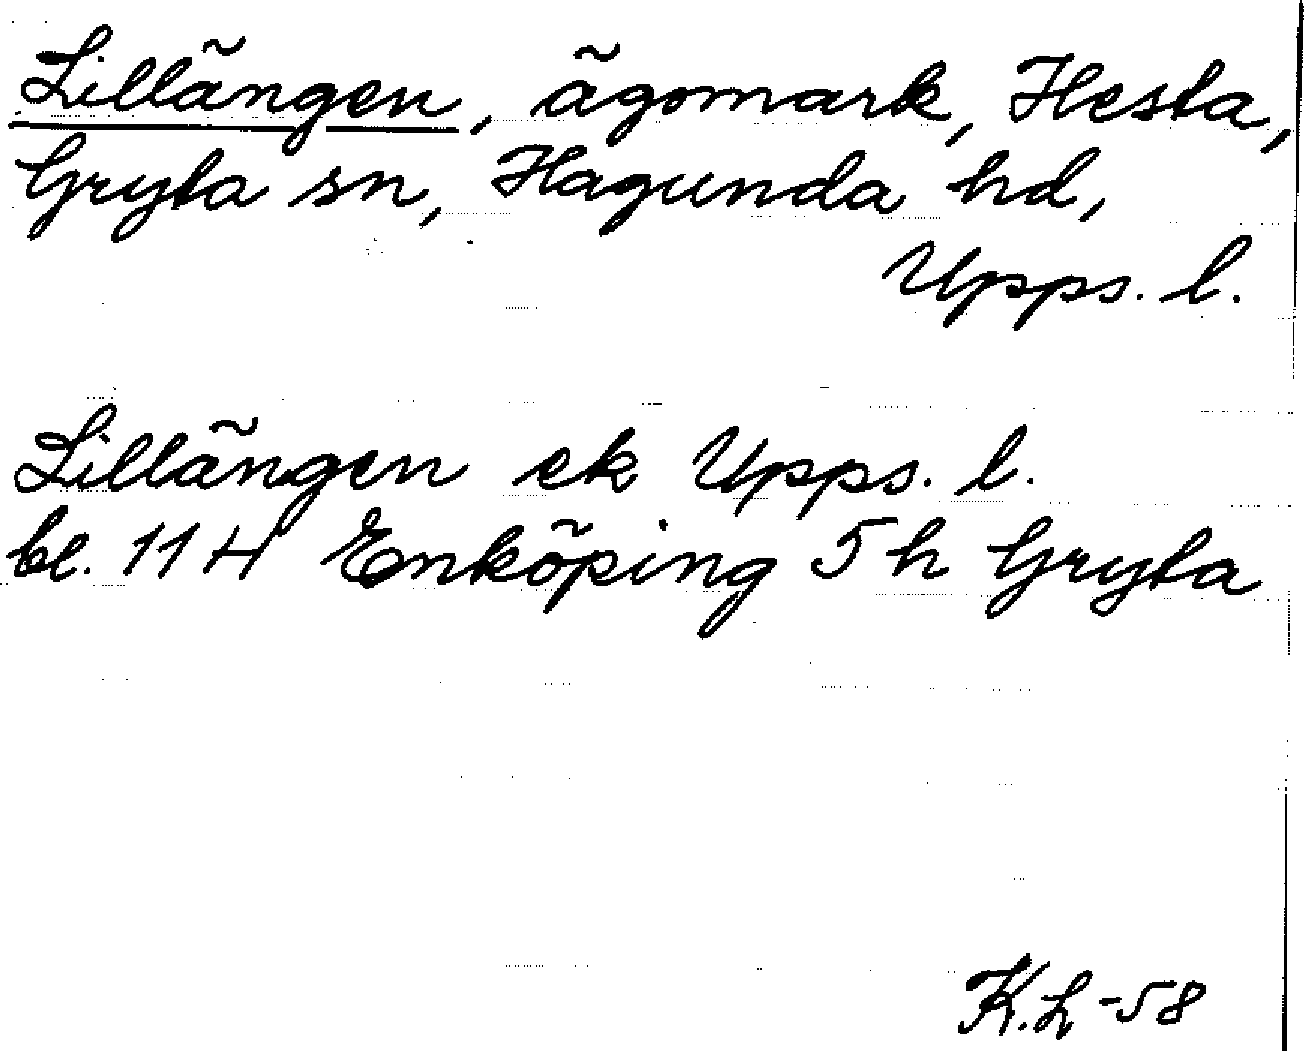 Lillängen, ägomark, Hesta,
Gryta sn, Hagunda hd,
Upps. l.
Lillängen ek Upps. l.
bl. 11 H Enköping 5 h Gryta
K.L-58